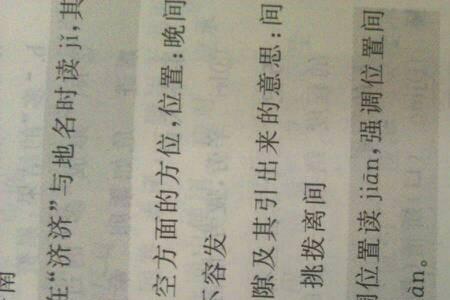 南
在“济济”与地名时读 jǐ，其
空方面的方位，位置：晚间
不容发
隙及其引出来的意思：间
挑拨离间
位置读 jiān，强调位置间
àn。